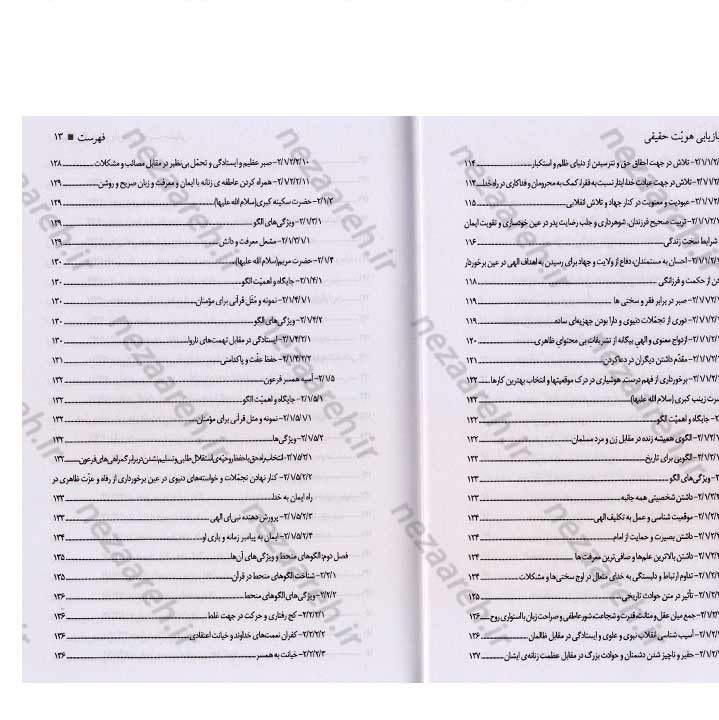 بازیابی هویّت حقیقی
۲/۱/۱/۲/- تلاش در جهت احقاق حق و نترسیدن از دنیای ظلم و استکبار ۱۱۴
۲/۱/۱/۲/- تلاش در جهت عبادت خدا، ایثار نسبت به فقرا، کمک به محرومان و فداکاری در راه خدا ۱۱۴
۲/۱/۱/۲/- عبودیت و معنویت در کنار جهاد و تلاش انقلابی ۱۱۵
۲/۱/۱/۲/- تربیت صحیح فرزندان، شوهرداری و جلب رضایت پدر در عین خودسازی و تقویت ایمان
شرایط سخت زندگی ۱۱۶
۲/۱/۱/۲/- احسان به مستمندان، دفاع از ولایت و جهاد برای رسیدن به اهداف الهی در عین برخوردار
دن از حکمت و فرزانگی ۱۱۸
۲/۱/۱/۲/- صبر در برابر فقر و سختی ها ۱۱۹
۲/۱/۱/۲/- دوری از تجمّلات دنیوی و دارا بودن جهزیه‌ای ساده ۱۱۹
۲/۱/۱/۲/- ازدواج معنوی و الهی بیگانه از تشریفات بی محتوای ظاهری ۱۲۰
۲/۱/۱/۲/- مقدّم داشتن دیگران در دعا کردن ۱۲۱
۲/۱/۱/۲/- برخورداری از فهم درست، هوشیاری در درک موقعیتها و انتخاب بهترین کارها ۱۲۲
رت زینب کبری(سلام الله علیها) ۱۲۲
- جایگاه و اهمیّت الگو ۱۲۲
۲/۱/۲/۱- الگوی همیشه زنده در مقابل زن و مرد مسلمان ۱۲۲
۲/۱/۲/۱- الگویی برای تاریخ ۱۲۲
- ویژگی‌های الگو ۱۲۳
۲/۱/۲/۲- داشتن شخصیتی همه جانبه ۱۲۳
۲/۱/۲/۲- موقعیت شناسی و عمل به تکلیف الهی ۱۲۴
۲/۱/۲/۲- داشتن بصیرت و حمایت از امام ۱۲۴
۲/۱/۲/۲- داشتن بالاترین علم‌ها و صافی‌ترین معرفت ها ۱۲۴
۲/۱/۲/۲- تداوم ارتباط و دلبستگی به خدای متعال در اوج سختی‌ها و مشکلات ۱۲۴
۲/۱/۲/۲- تأثیر در متن حوادث تاریخی ۱۲۵
۲/۱/۲/۲- جمع میان عقل و متانت، قدرت و شجاعت، شور عاطفی و صراحت زبان با استواری روح ۱۲۶
۲/۱/۲/۲- آسیب شناسی انقلاب نبوی و علوی و ایستادگی در مقابل ظالمان ۱۲۶
۲/۱/۲/۲- حقیر و ناچیز شدن دشمنان و حوادث بزرگ در مقابل عظمت زنانه‌ی ایشان ۱۲۷
فهرست ■ ۱۳
۲/۱/۲/۲/۱۰- صبر عظیم و ایستادگی و تحمّل بی‌نظیر در مقابل مصائب و مشکلات ۱۲۸
۲/۱/۲/۲/۱۱- همراه کردن عاطفه ی زنانه با ایمان و معرفت و زبان صریح و روشن ۱۲۹
۲/۱/۳- حضرت سکینه کبری(سلام الله علیها) ۱۲۹
۲/۱/۳/۱- ویژگی‌های الگو ۱۲۹
۲/۱/۳/۱/۱- مشعل معرفت و دانش ۱۲۹
۲/۱/۴- حضرت مریم(سلام الله علیها) ۱۳۰
۲/۱/۴/۱- جایگاه و اهمیّت الگو ۱۳۰
۲/۱/۴/۱/۱- نمونه و مَثَل قرآنی برای مؤمنان ۱۳۰
۲/۱/۴/۲- ویژگی‌های الگو ۱۳۰
۲/۱/۴/۲/۱- ایستادگی در مقابل تهمت‌های ناروا ۱۳۰
۲/۱/۴/۲/۲- حفظ عفّت و پاکدامنی ۱۳۱
۲/۱/۵- آسیه همسر فرعون ۱۳۲
۲/۱/۵/۱- جایگاه و اهمیّت الگو ۱۳۲
۲/۱/۵/۱/۱- نمونه و مثل قرآنی برای مؤمنان ۱۳۲
۲/۱/۵/۲- ویژگی‌ها ۱۳۲
۲/۱/۵/۲/۱- انتخاب راه حق با حفظ روحیّه‌ی استقلال طلبی و تسلیم نشدن در برابر گمراهی‌های فرعون ۱۳۲
۲/۱/۵/۲/۲- کنار نهادن تجمّلات و خواسته‌های دنیوی در عین برخورداری از رفاه و عزّت ظاهری در
راه ایمان به خدا ۱۳۳
۲/۱/۵/۲/۳- پرورش دهنده نبی‌ای الهی ۱۳۳
۲/۱/۵/۲/۴- ایمان به پیامبر زمانه و یاری او ۱۳۴
فصل دوم: الگوهای منحط و ویژگی‌های آن‌ها ۱۳۵
۲/۲/۱- شناخت الگوهای منحط در قرآن ۱۳۵
۲/۲/۲- ویژگی‌های الگوهای منحط ۱۳۶
۲/۲/۲/۱- کج رفتاری و حرکت در جهت غلط ۱۳۶
۲/۲/۲/۲- کفران نعمت‌های خداوند و خیانت اعتقادی ۱۳۶
۲/۲/۲/۳- خیانت به همسر ۱۳۶
nezaareh.ir